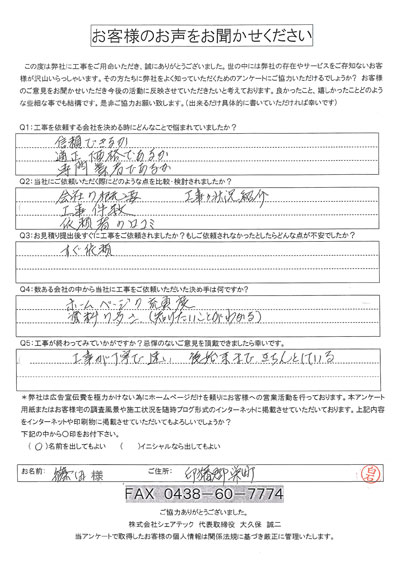 お客様のお声をお聞かせください
この度は弊社に工事をご用命いただき、誠にありがとうございました。世の中には弊社の存在やサービスをご存知ないお客様
が沢山いらっしゃいます。その方たちに弊社をよく知っていただくためのアンケートにご協力いただけるでしょうか?お客様
のご意見をお聞かせいただき今後の活動に反映させていきたいと考えております。良かったこと、嬉しかったことどのよう
な些細な事でも結構です。是非ご協力お願い致します。(出来るだけ具体的に書いていただければ幸いです)
Q1:工事を依頼する会社を決める時にどんなことで悩まれていましたか?
信頼できるか
適正価格であるか
専門業者であるか
Q2:当社にご依頼いただく際にどのような点を比較・検討されましたか?
会社の概要 工事の状況紹介
工事件数
依頼者の口コミ
Q3:お見積り提出後すぐに工事をご依頼されましたか?もしご依頼されなかったとしたらどんな点が不安でしたか?
すぐ依頼
Q4:数ある会社の中から当社に工事をご依頼いただいた決め手は何ですか?
ホームページの充実度
資料の多さ(知りたいことがわかる)
Q5:工事が終わってみていかがですか?忌憚のないご意見を頂戴できましたら幸いです。
工事が丁寧で速い 後始末まできちんとしている
*弊社は広告宣伝費を極力かけない為にホームページだけを頼りにお客様への営業活動を行っております。本アンケート
用紙またはお客様宅の調査風景や施工状況を随時ブログ形式のインターネットに掲載させていただいております。上記内容
をインターネットや印刷物に掲載させていただいてもよろしいでしょうか?
下記の中から〇印をお付下さい。
(〇)名前を出してもよい ( )イニシャルなら出してもよい
お名前: 様 ご住所: 印旛郡栄町
FAX 0438-60-7774
ご協力ありがとうございました。
株式会社シェアテック 代表取締役 大久保 誠二
当アンケートで取得したお客様の個人情報は関係法規に基づき厳正に管理いたします。